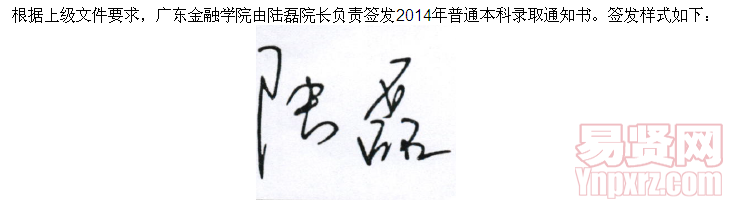 根据上级文件要求，广东金融学院由陆磊院长负责签发2014年普通本科录取通知书。签发样式如下：
陆磊
易贤网
Ynpxrz.com